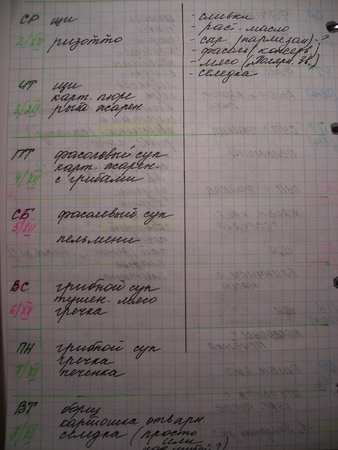 СР щи
2/XII ризотто
ЧТ щи
карт. пюре
3/XII рыба жарен
ПТ фасолевый суп
карт. жарен.
4/XII с грибами
СБ фасолевый суп
5/XII
пельмени
ВС грибной суп
тушен. мясо
6/XII гречка
ПН грибной суп
гречка
7/XII печенка
ВТ борщ
картошка отварн
8/XII селедка (просто
или
- сливки
- раст. масло
- сыр (пармезан)-?
- фасоль (консерв.)
- мясо
- селедка